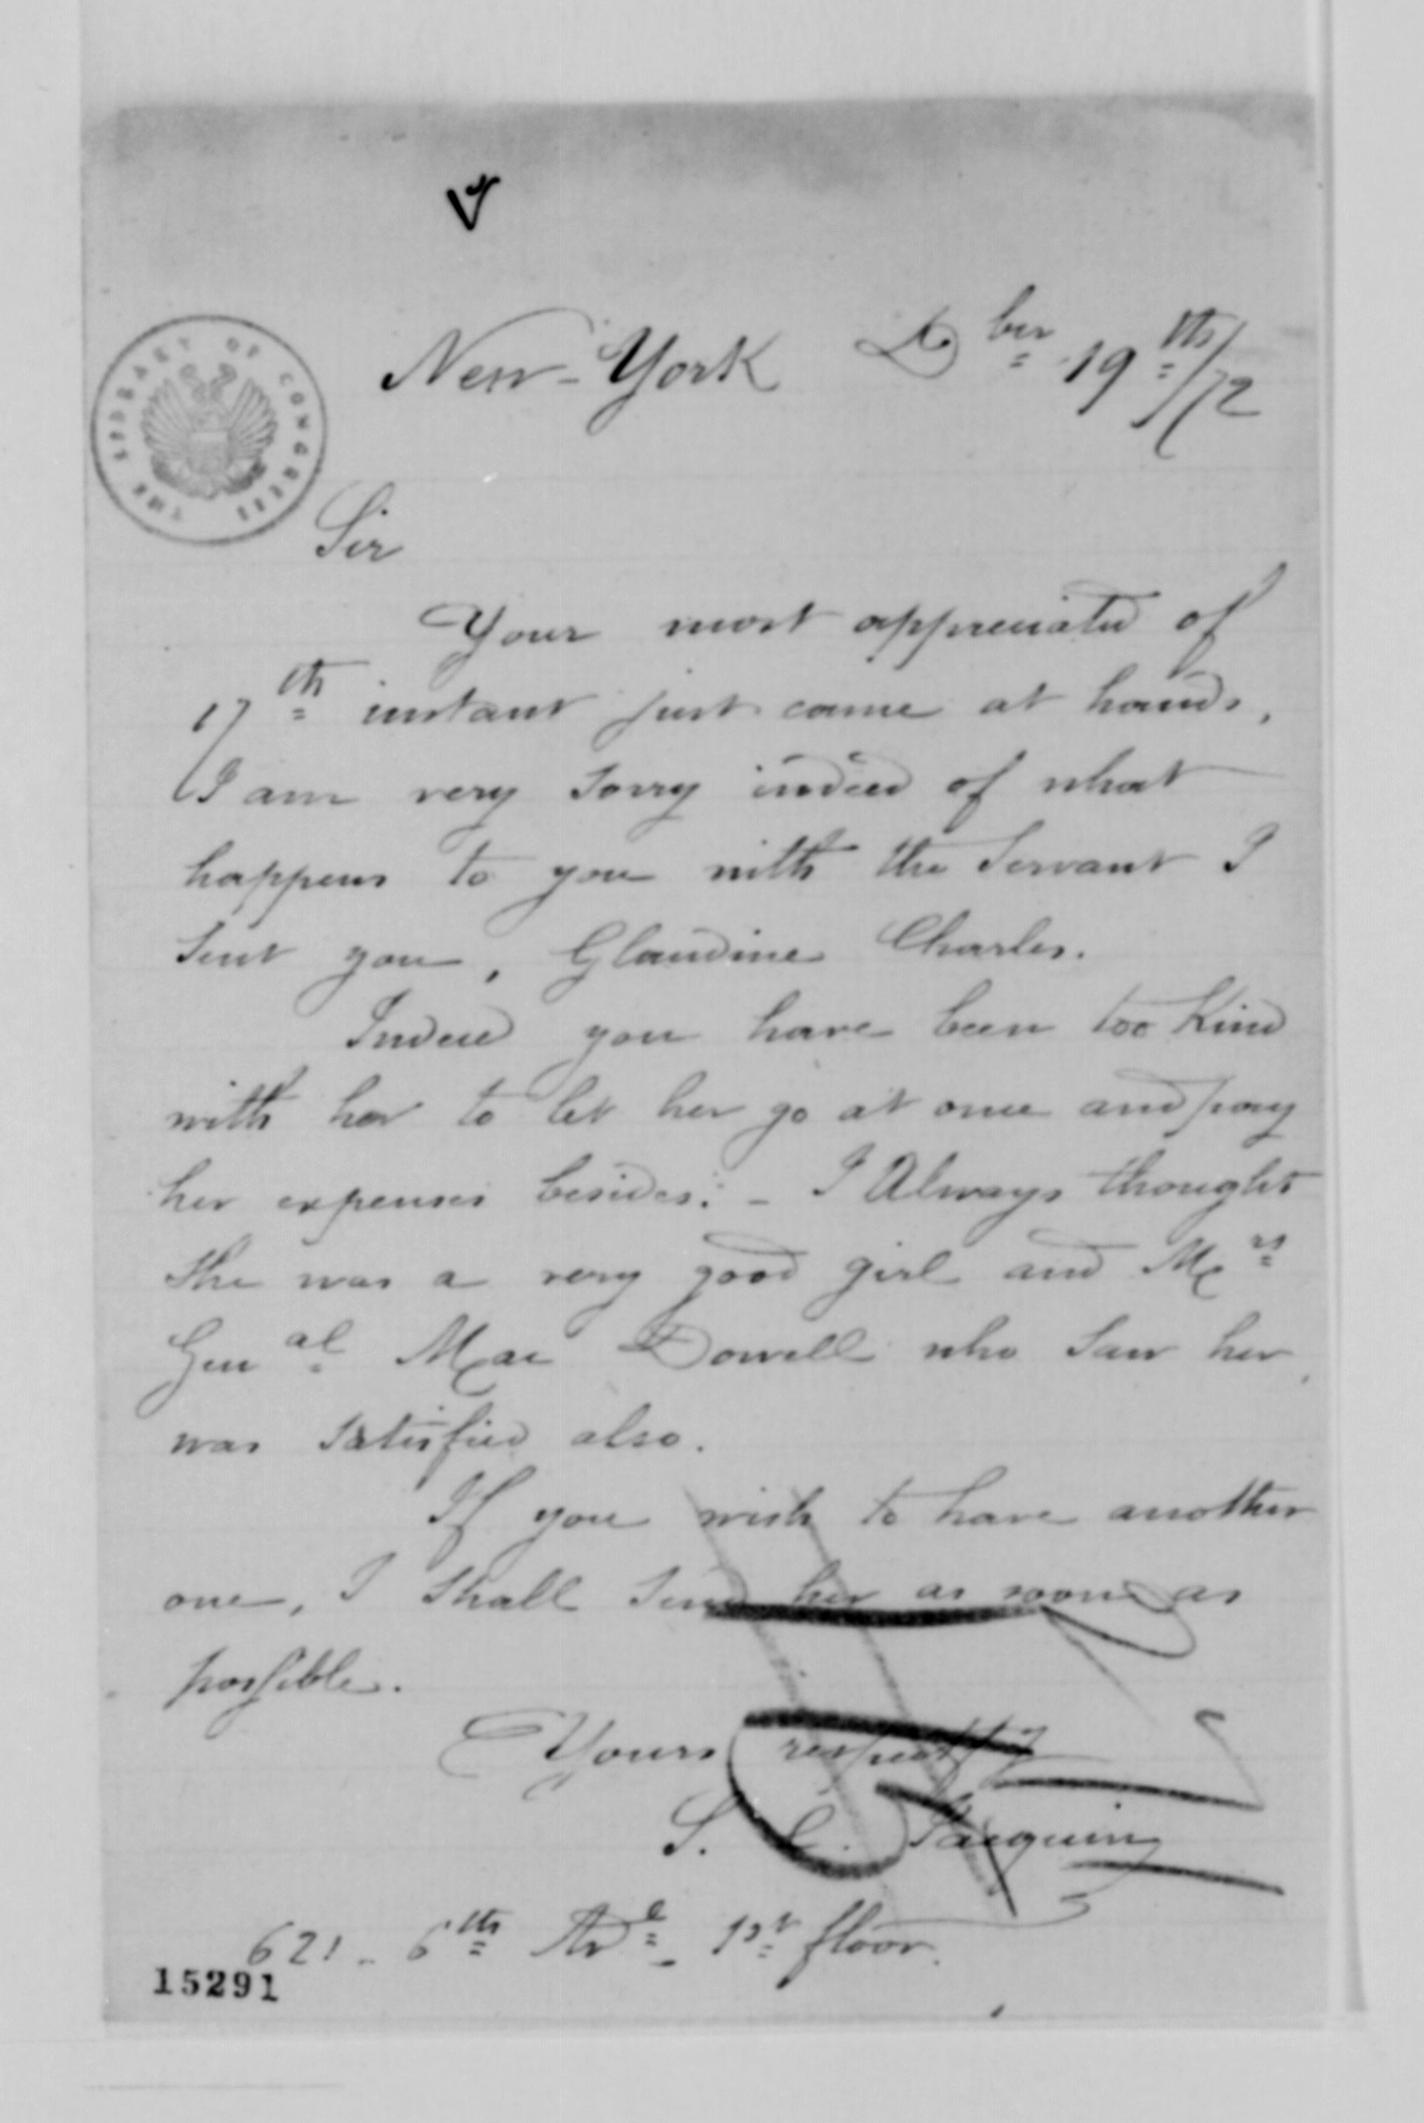 New-York Dber 19th/72
THE LIBRARY OF CONGRESS
Sir
Your most appreciated of
17th instant just came at hands,
I am very sorry indeed of what
happens to you with the Servant I
sent you, Glaudine Charles.
Indeed you have been too Kind
with her to let her go at once and pay
her expenses besides. - I Always thought
she was a very good girl and Mrs
Genal Mac Dowell who saw her,
was satisfied also.
If you wish to have another
one, I shall send her as soon as
possible.
Yours respectfy
S. C. Jacquin
621 - 6th Ave - 1st floor.
15291